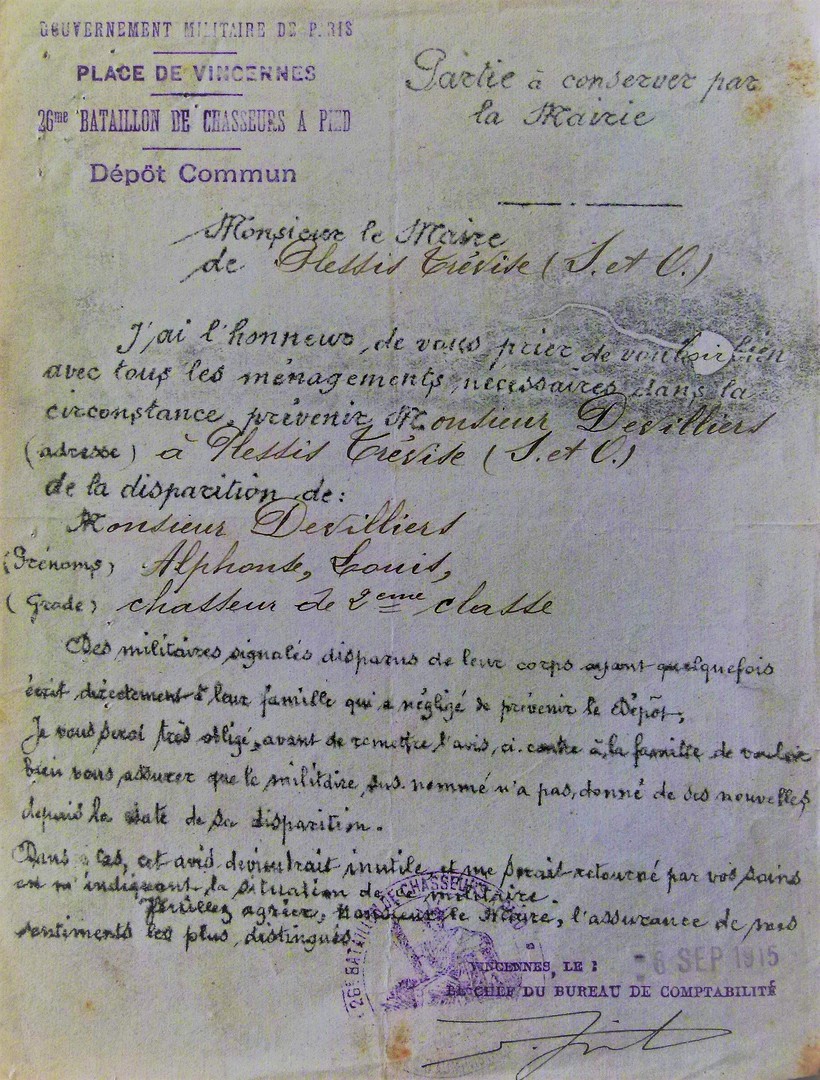 GOUVERNEMENT MILITAIRE DE PARIS
PLACE DE VINCENNES
26me BATAILLON DE CHASSEURS A PIED
Dépôt Commun
Partie à conserver par
la Mairie
Monsieur le Maire
de Plessis Trévise (S. et O.)
J'ai l'honneur, de vous prier de vouloir bien
avec tous les ménagements, nécessaires dans la
circonstance, prévenir Monsieur Devilliers
(adresse) à Plessis Trévise (S. et O.)
de la disparition de:
Monsieur Devilliers
(Prénoms) Alphonse, Louis,
(Grade) chasseur de 2eme classe
Des militaires signalés disparus de leur corps ayant quelquefois
écrit directement à leur famille qui a négligé de prévenir le Dépôt,
Je vous serai très obligé, avant de remettre l'avis, ci. contre à la famille de vouloir
bien vous assurer que le militaire, sus. nommé n'a pas, donné de ses nouvelles
depuis la date de sa disparition.
Dans ce cas, cet avis deviendrait inutile, et me serait retourné par vos soins
en m'indiquant la situation de ce militaire.
Veuillez agréer, Monsieur le Maire, l'assurance de mes
sentiments les plus, distingués
26e BATAILLON DE CHASSEURS
VINCENNES, LE : - 6 SEP 1915
LE CHEF DU BUREAU DE COMPTABILITÉ